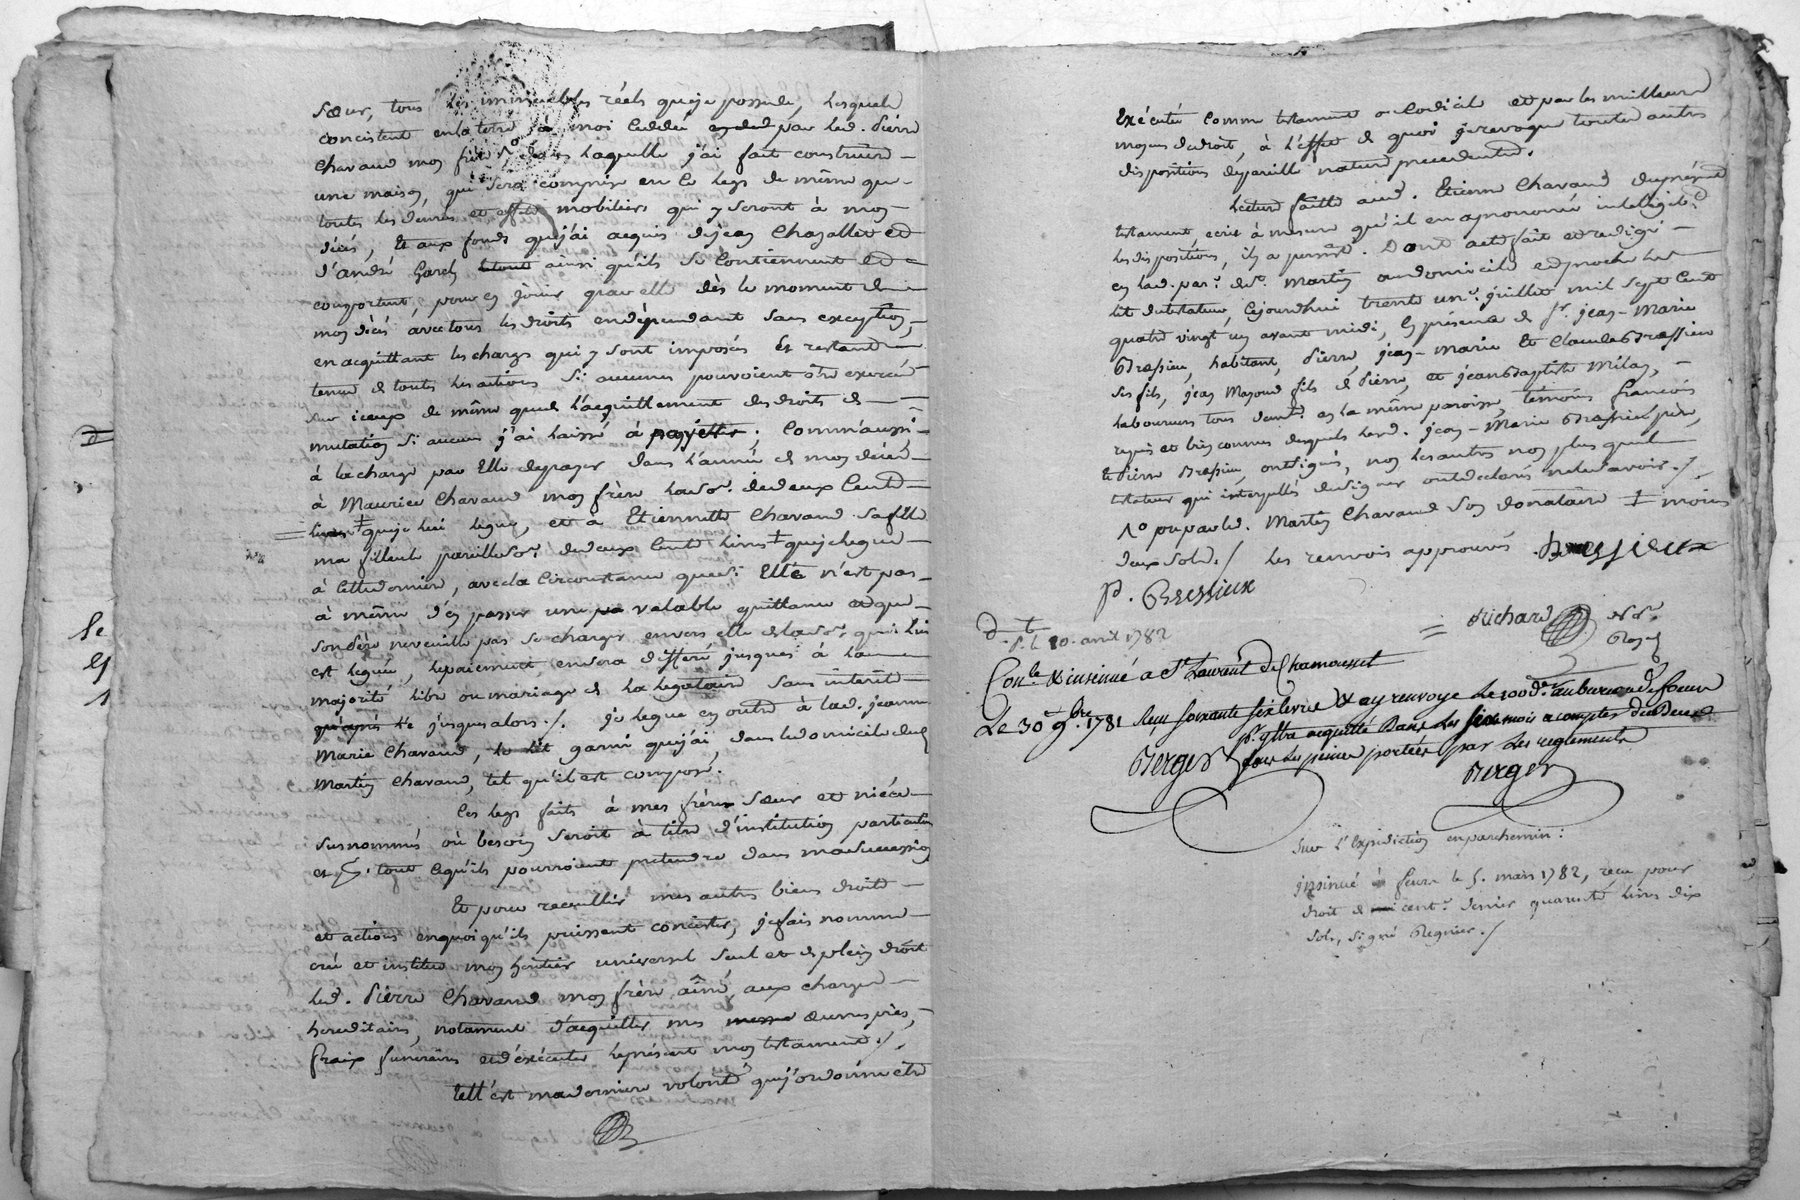 Sœur, tous les immeubles réels que je possede, lesquels
concistent en la terre à moi ceddée par led. Pierre
Chavand mon frère 1° dans laquelle j'ai fait construire
une maison, qui sera comprise en ce legs de même que
touts les denrées et effets mobiliers qui y seront à mon
décès, Et aux fonds que j'ai acquis de jean Chazallet et
d'andré Garel ainsi qu'ils se contiennent et
comportent, pour en jouir par elle dès le moment de
mon décès avec tous les droits en dépendant sans exception,
en acquittant les charges qui y sont imposées Et restant
tenue de touts les actions si aucunes pouvoient être exercées
sur iceux de même que de l'acquittement des droits de
mutation si aucuns j'ai laissé à payer ; Comm'aussi
à la charge par Elle de payer dans l'année de mon décès
à Maurice Chavand mon frère la so.e de deux Cents
livres ‡ que je lui legue, et à Etiennette Chavand sa fille
ma filleule pareille so.e de deux Cents livres ‡ que je legue
à cette derniere, avec la Circonstance que si Elle n'est pas
à même d'en passer une valable quittance et que
son père ne veuille pas se charger envers elle de la so.e qui lui
est leguée, le paiement en sera differé jusques à la
majorité libre ou mariage de la legataire sans interêt
jusques alors ./. je legue en outre à lad. jeanne
Marie Chavand, le lit garni que j'ai, dans le domicile dud.
Martin Chavand, tel qu'il est composé.
Ces legs faits à mes frères sœur et niéce
susnommés où besoin seroit à titre d'institution particuliere
et p.r tout ce qu'ils pourroient pretendre dans ma succession
Et pour receuillir mes autres biens droits
et actions en quoi qu'ils puissent concister, je fais nomme
crée et institue mon heritier universel seul et de plein droit
led. Pierre Chavand mon frère aîné, aux charges
hereditaires, notament d'acquitter mes œuvres pies,
fraix funeraires et d'exécuter le présent mon testament ./.
telle est ma derniere volonté que j'ordonne etre
Exécutée Comme testament ou Codicile et par les meilleurs
moyens de droit, à l'effet de quoi je revoque toutes autres
dispositions de pareille nature precedentes.
Lecture faitte aud. Etienne Chavand du présent
testament ecrit à mesure qu'il en a prononcé intelligib.t
les dispositions, il y a persisté. Dont acte fait et redigé
en lad. par.e de St. Martin au domicile et proche le
lit du testateur, cejourdhui trente un.e juillet mil sept cent
quatre vingt un avant midi, En présence de s.r jean-Marie
Bressieu, habitant, Pierre, jean-marie Et Claude Bressieu
ses fils, jean Mazoud fils de Pierre, et jean Baptiste Milan,
laboureurs tous demt. en la même paroisse, témoins françois
requis et bien connus desquels lesd. jean-Marie Bressieu père,
et Pierre Bressieu, ont signés, non les autres non plus que le
testateur qui interpellés de signer ont declarés ne le savoir ./.
1° ou par led. Martin Chavand son donataire ‡ moins
deux sols ./. Les renvois approuvés. Bressieux
P. Bressieux
Richard No.re
Royal
d. t.
S. L. 20. avril 1782
Con.lé & insinué a St. Laurent de Chamousset
Le 30 9.bre 1781 Reçu soixante six livres & ay renvoyé Le 100.e d.er au bureau de feurs
p.r y être acquitté Dans Les six mois a compter du Deces
sous les peines portées par les reglements
Berger
Berger
Sur l'Expédiction en parchemin :
insinué à feurs le 5. mars 1782, reçu pour
droit de cent.e denier quarante livres dix
sols, signé Regnier ./.